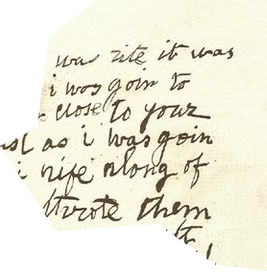 was rite it was
i was goin to
close to your
as i was goin
i nife along of
wrote them